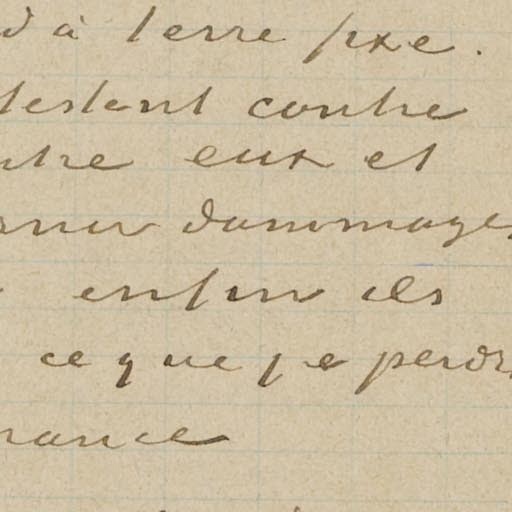 à terre fixe.
testent contre
ntre eux et
dommages
enfin ils
ce que je perdr
rance